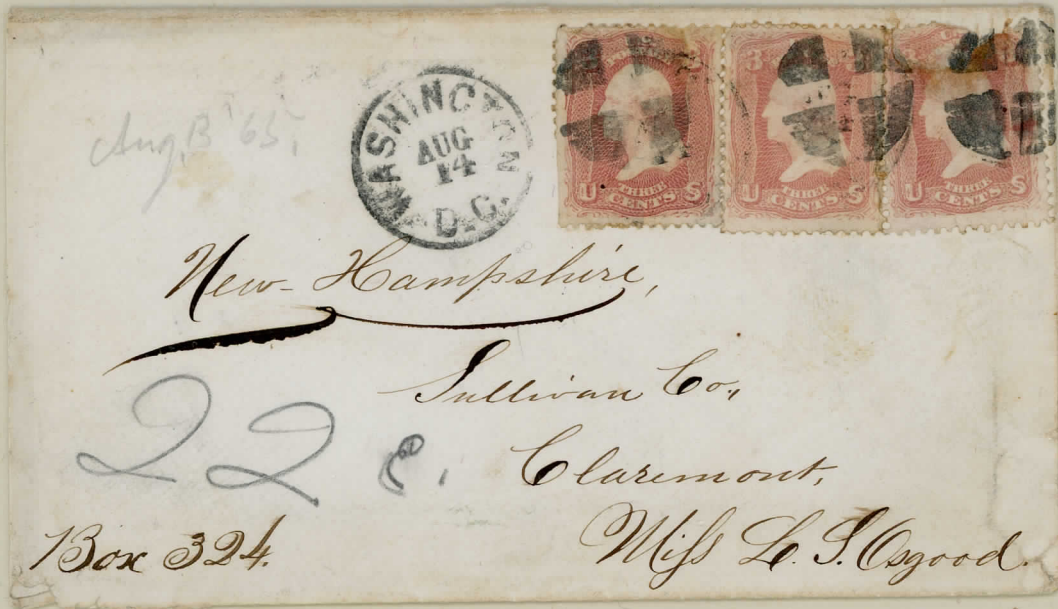 Aug. 13 '65.
WASHINGTON
AUG
14
D.C.
U THREE CENTS S
3
U THREE CENTS S
U THREE CENTS S
New-Hampshire,
Sullivan Co.,
Claremont,
Miss L. S. Osgood.
22 e.
Box 324.